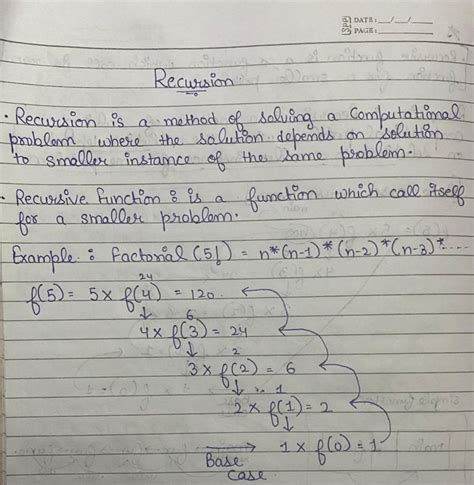 DATE: __/__/__
PAGE:
Recursion
• Recursion is a method of solving a Computational
problem where the solution depends on solution
to smaller instance of the same problem.
• Recursive function : is a function which call itself
for a smaller problem.
Example : Factorial (5!) = n*(n-1)*(n-2)*(n-3)*....
24
f(5) = 5 x f(4) = 120
↓ 6
4 x f(3) = 24
↓ 2
3 x f(2) = 6
↓ 1
2 x f(1) = 2
↓
→ 1 x f(0) = 1
Base
Case